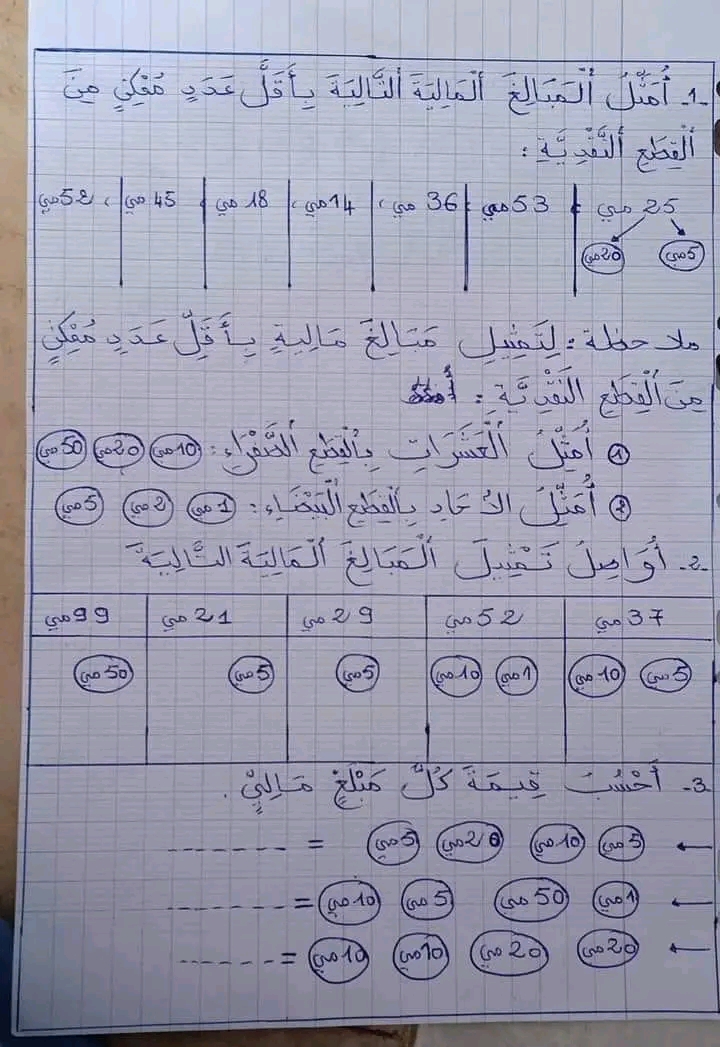 1- أُمَثِّلُ ٱلْمَبَالِغَ ٱلْمَالِيَةَ ٱلتَّالِيَةَ بِأَقَلَّ عَدَدٍ مُمْكِنٍ مِنَ
ٱلْقِطَعِ ٱلنَّقْدِيَّةِ :
25 مي 53 مي 36 مي، 14 مي، 18 مي 45 مي، 52 مي
5مي 20مي
ملاحظة : لِتَمْثِيلِ مَبَالِغَ مَالِيةٍ بِأَقَلِّ عَدَدٍ مُمْكِنٍ
مِنَ ٱلْقِطَعِ النَقْدِيَّة :
① أُمَثِّلُ ٱلْعَشَرَاتِ بِٱلْقِطَعِ ٱلصَّفْرَاءِ : 10مي 20مي 50مي
② أُمَثِّلُ الآحَادِ بِالْقِطَعِ ٱلْبَيْضَاءِ : 1مي 2مي 5مي
2- أُوَاصِلُ تَمْثِيلَ ٱلْمَبَالِغَ ٱلْمَالِيَةَ التَّالِيَةَ
37 مي 52 مي 29 مي 21 مي 99 مي
5مي 10مي 1مي 10مي 5مي 5مي 50مي
3- أَحْسُبُ قِيمَةَ كُلَّ مَبْلَغٍ مَالِيٍّ .
← 5مي 10مي 20مي 5مي = -------
← 1مي 50مي 5مي 10مي = -------
← 20مي 20مي 10مي 10مي = ------